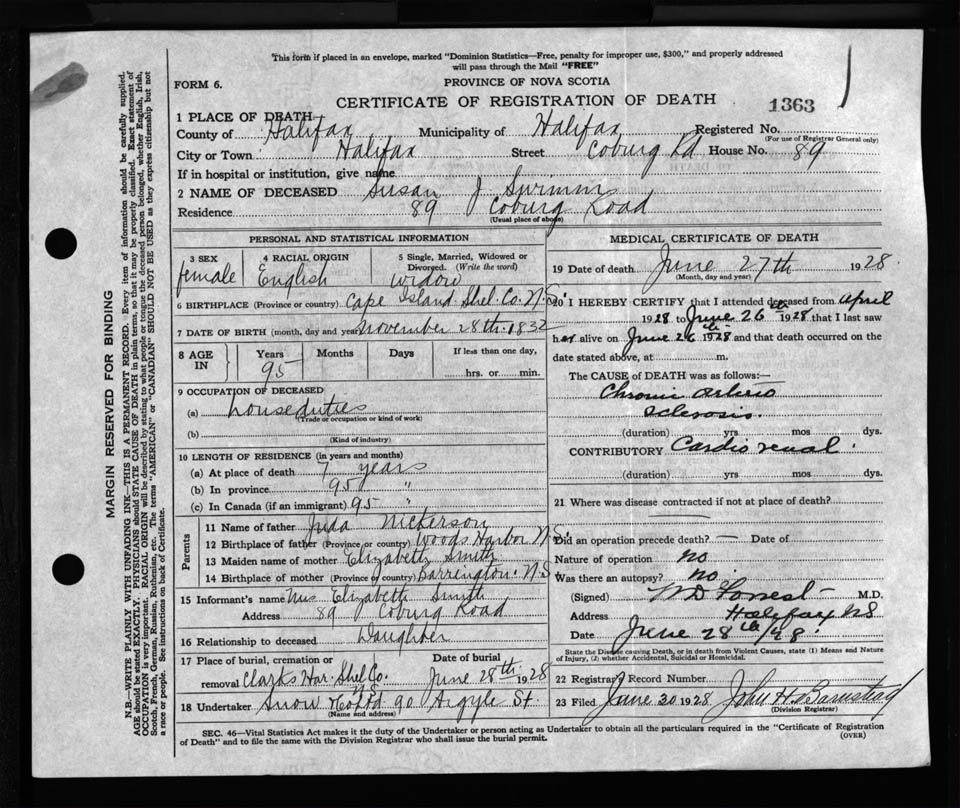 This form if placed in an envelope, marked "Dominion Statistics—Free, penalty for improper use, $300," and properly addressed
will pass through the Mail "FREE"
FORM 6.
PROVINCE OF NOVA SCOTIA
CERTIFICATE OF REGISTRATION OF DEATH
1363
1 PLACE OF DEATH
County of Halifax Municipality of Halifax Registered No.
(For use of Registrar General only)
City or Town Halifax Street Coburg Rd House No. 89
If in hospital or institution, give name
2 NAME OF DECEASED Susan J Swimm
Residence 89 Coburg Road
(Usual place of abode)
PERSONAL AND STATISTICAL INFORMATION
3 SEX 4 RACIAL ORIGIN 5 Single, Married, Widowed or
Divorced. (Write the word)
female English widow
6 BIRTHPLACE (Province or country) Cape Island Shel. Co. N.S
7 DATE OF BIRTH (month, day and year) November 28th. 1832
8 AGE IN Years Months Days If less than one day,
95 hrs. or min.
9 OCCUPATION OF DECEASED
(a) house duties
(Trade or occupation or kind of work)
(b)
(Kind of industry)
10 LENGTH OF RESIDENCE (in years and months)
(a) At place of death 7 years
(b) In province 95 "
(c) In Canada (if an immigrant) 95 "
Parents
11 Name of father Juda Nickerson
12 Birthplace of father (Province or country) Woods Harbor N.S
13 Maiden name of mother Elizabeth Smith
14 Birthplace of mother (Province or country) Barrington. N.S
15 Informant's name Mrs Elizabeth Smith
Address 89 Coburg Road
16 Relationship to deceased Daughter
17 Place of burial, cremation or Date of burial
removal Clarks Har. Shel Co. N.S June 28th. 1928
18 Undertaker Snow & Co Ltd 90 Argyle St
(Name and address)
MEDICAL CERTIFICATE OF DEATH
19 Date of death June 27th 1928.
(Month, day and year)
20 I HEREBY CERTIFY that I attended deceased from April
1928 to June 26th 1928 that I last saw
her alive on June 26th 1928 and that death occurred on the
date stated above, at m.
The CAUSE of DEATH was as follows:—
Chronic arterio
sclerosis.
(duration) yrs mos dys.
CONTRIBUTORY Cardio renal.
(duration) yrs mos dys.
21 Where was disease contracted if not at place of death?
Did an operation precede death? — Date of
Nature of operation no
Was there an autopsy? no.
(Signed) W D Forrest M.D.
Address Halifax NS
Date June 28th/28.
State the Disease causing Death, or in death from Violent Causes, state (1) Means and Nature
of Injury, (2) whether Accidental, Suicidal or Homicidal.
22 Registrar's Record Number
23 Filed June 30 1928 John H. Barnstead
(Division Registrar)
SEC. 46—Vital Statistics Act makes it the duty of the Undertaker or person acting as Undertaker to obtain all the particulars required in the "Certificate of Registration
of Death" and to file the same with the Division Registrar who shall issue the burial permit.
(OVER)
MARGIN RESERVED FOR BINDING
N.B.—WRITE PLAINLY WITH UNFADING INK—THIS IS A PERMANENT RECORD. Every item of information should be carefully supplied.
AGE should be stated EXACTLY. PHYSICIANS should STATE CAUSE OF DEATH in plain terms, so that it may be properly classified. Exact statement of
OCCUPATION is very important. RACIAL ORIGIN will be described by stating to what people or tongue the deceased person belonged, whether English, Irish,
Scotch, French, German, Russian, Ruthenian, etc. The terms "AMERICAN" or "CANADIAN" SHOULD NOT BE USED as they express citizenship but not
a race or people. See instructions on back of Certificate.